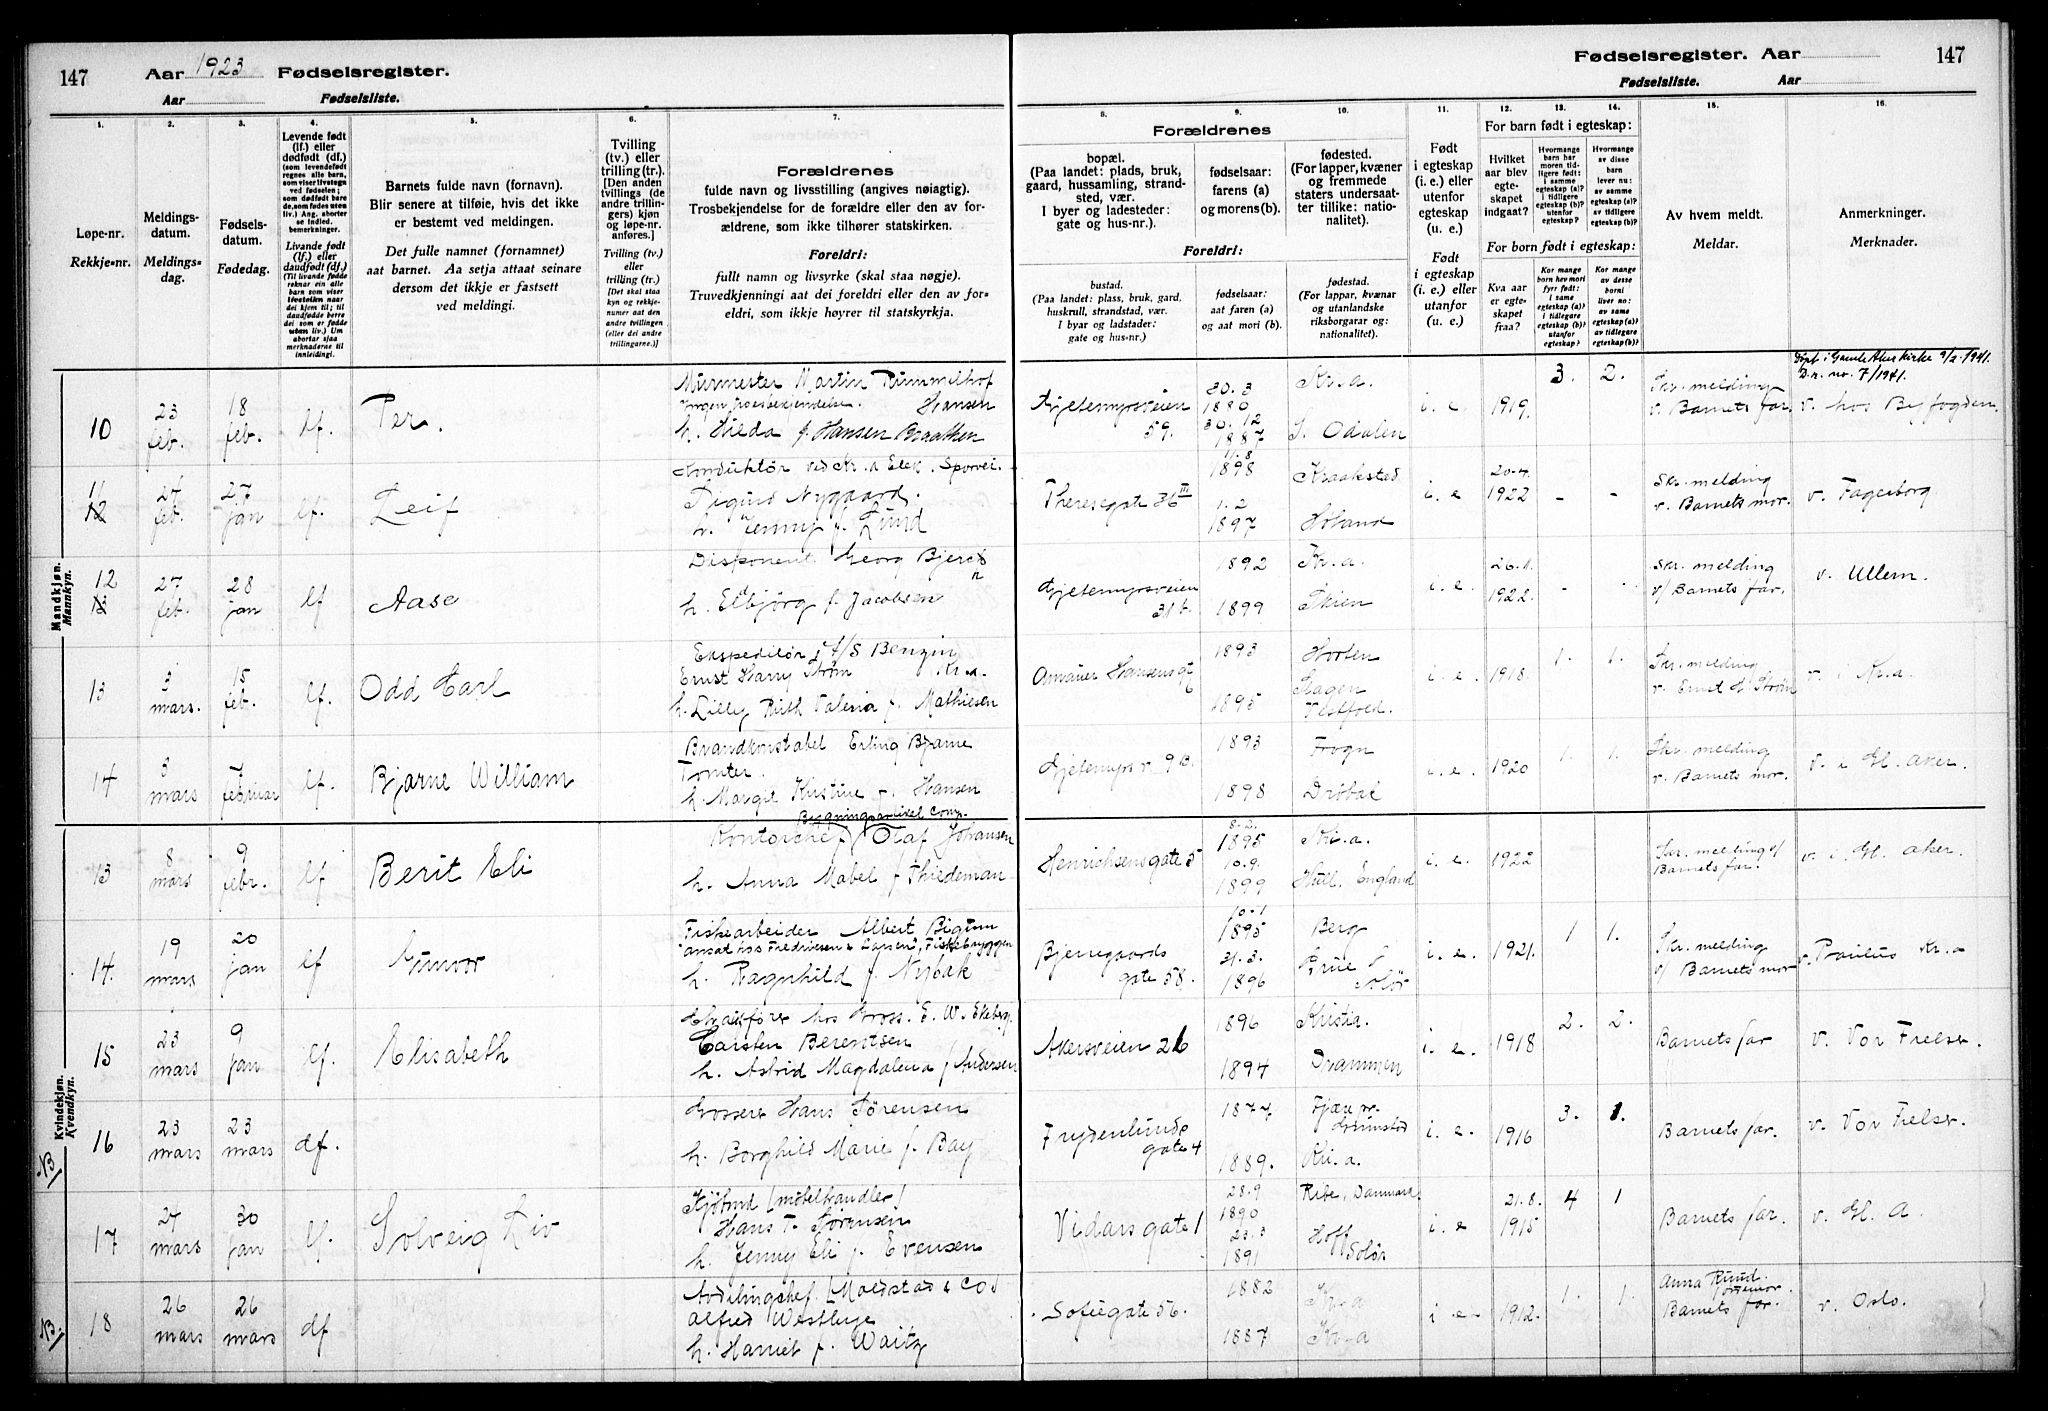 147 Aar 1923 Fødselsregister.
Aar Fødselsliste.
Fødselsregister. Aar 147
Fødselsliste. Aar
1. Løpe-nr. Rekkje-nr.
2. Meldings-datum. Meldings-dag.
3. Fødsels-datum. Fødedag.
4. Levende født (lf.) eller dødfødt (df.)
Livande født (lf.) eller daudfødt (df.)
5. Barnets fulde navn (fornavn).
Blir senere at tilføie, hvis det ikke
er bestemt ved meldingen.
Det fulle namnet (fornamnet)
aat barnet. Aa setja attaat seinare
dersom det ikkje er fastsett
ved meldingi.
6. Tvilling
(tv.) eller
trilling (tr.)
7. Forældrenes
fulde navn og livsstilling (angives nøiagtig).
Trosbekjendelse for de forældre eller den av for-
ældrene, som ikke tilhører statskirken.
Foreldri:
fullt namn og livsyrke (skal staa nøgje).
Truvedkjenningi aat dei foreldri eller den av for-
eldri, som ikkje høyrer til statskyrkja.
Forældrenes
8. bopæl.
(Paa landet: plads, bruk,
gaard, hussamling, strand-
sted, vær.
I byer og ladesteder:
gate og hus-nr.).
Foreldri:
bustad.
(Paa landet: plass, bruk, gard,
huskrull, strandstad, vær.
I byar og ladstader:
gate og hus-nr.)
9. fødselsaar:
farens (a)
og morens (b).
fødselsaar:
aat faren (a)
og aat mori (b).
10. fødested.
(For lapper, kvæner
og fremmede
staters undersaat-
ter tillike: natio-
nalitet).
fødestad.
(For lappar, kvænar
og utanlandske
riksborgarar og:
nationalitet).
11. Født
i egteskap
(i. e.) eller
utenfor
egteskap
(u. e.)
Født
i egteskap
(i. e.) eller
utanfor
(u. e.)
For barn født i egteskap:
12. Hvilket
aar blev
egte-
skapet
indgaat?
For born født i egteskap:
Kva aar
er egte-
skapet
fraa?
13.
14.
15. Av hvem meldt.
Meldar.
16. Anmerkninger.
Merknader.
Mandkjøn.
Mannkyn.
10 23 feb. 18 feb. lf. Per. Murmester Martin Rummelhof Hansen
h. Hilda f. Hansen Braathen
Gjetemyrsveien 59. 30.3 1880 30.12 1887 Kr.a. S. Odalen i. e. 1919. 3. 2. Skr. melding v. Barnets far.
Døpt i Gamle Aker kirke 9/2 1941. D.r. no. 7/1941. v. hos Byfogden.
11 27 feb. 27 jan lf. Leif Konduktør ved Kr.a Elek. Sporvei.
Sigurd Nygaard.
h. Jenny f. Lund
Theresegate 36 III 11.8 1898 1.2 1897 Kraakstad Høland i. e 20-4. 1922 - - Skr. melding v. Barnets mor. v. Fagerborg
12 27 feb. 28 jan lf Aase Disponent Georg Bjerck
h. Elbjørg f. Jacobsen
Gjetemyrsveien 31 b. 1892 1899 Kr.a. Skien i. e. 26.1. 1922. - - Skr. melding v/ Barnets far. v. Ullern.
13 3 mars. 15 feb. lf. Odd Carl Ekspeditør i A/S Benzin Kr.a.
Ernst Harry Strøm
h. Lilly Ruth Valeria f. Mathiesen
Amauer Hansensgt 6 1893 1895 Horten Slagen Vestfold. i. e. 1918. 1. 1. Skr. melding v. Ernst H. Strøm v. i Kr.a.
14 3 mars 7 februar lf. Bjarne William Brandkonstabel Erling Bjarne
Tomter.
h. Margit Kristine f. Hansen
Gjetemyrsv. 9 B. 1893 1898 Frogn Drøbak i. e. 1920 1. 1. Skr. melding v. Barnets mor. v. i Gl. Aker.
Kvindekjøn.
Kvendkyn.
13 8 mars 9 febr. lf Berit Eli Bygningsartikel Comp.
Kontorchef Olaf Johansen
h. Anna Mabel f. Thiedeman
Henrichsensgate 5 8-2. 1895 10.9. 1899 Kr.a. Hull, England i. e. 1922 Skr. melding v/ Barnets far. v. i. Gl. Aker.
14. 19 mars 20 jan lf Gunvor Fiskearbeider Albert Bigtun
ansat hos Fredriksen & Larsen, Fiskebryggen
h. Ragnhild f. Nybak
Bjerregaards gate 58. 10-1 1895 31.3. 1896 Berg Grue Solør i. e. 1921. 1 1. Skr. melding v/ Barnets mor v. Paulus Kr.a
15 23 mars 9 jan lf. Elisabeth Chauffør hos Gross. E. W. Ekeberg.
Carsten Berentsen
h. Astrid Magdalena f Andersen
Akersveien 26 1896 1894 Kristia. Drammen i. e. 1918 2. 2. Barnets far v. Vor Frelser.
NB 16 23 mars 23 mars df. Grosserer Hans Sørensen
h. Borghild Marie f. Bay
Frydenlunds gate 4 1877. 1889. Fjære pr. Grimstad Kr.a. i. e. 1916 3. 1. Barnets far. v. Vor Frelser.
17 27 mars 30 jan lf. Solveig Liv Kjøbmd [møbelhandler]
Hans T. Sørensen
h. Jenny Eli f. Evensen
Vidars gate 1 28.9 1890 23.3 1891 Ribe, Danmark. Hoff Solør i. e 21.8. 1915 4 1 Barnets far. v. Gl. A.
NB. 18 26 mars 26 mars df Avdelingschef [Moestad & Co]
Alfred Westbye
h. Harriet f. Waitz
Sofiegate 56. 1882 1887 Kr.a Kr.a i. e. 1912. 1. 1. Anna Ruud. jordmor. Barnets far. v. Oslo.